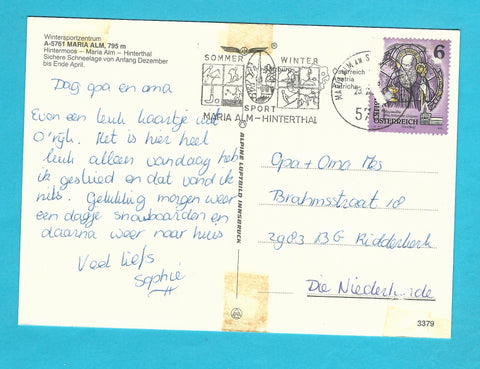 Wintersportzentrum
A-5761 MARIA ALM, 795 m
Hintermoos – Maria Alm – Hinterthal
Sichere Schneelage von Anfang Dezember
bis Ende April.
Dag opa en oma
Even een leuk kaartje uit
O'rijk. Het is hier heel
leuk alleen vandaag heb
ik gesleed en dat vond ik
niks. Gelukkig morgen weer
een dagje snowboarden en
daarna weer naar huis
Veel liefs
Sophie
SOMMER WINTER
SPORT
MARIA ALM-HINTERTHAL
MARIA ALM AM S
57
6
REPUBLIK
ÖSTERREICH
ALPINE LUFTBILD INNSBRUCK
Opa + Oma
Brahmsstraat 18
2983 BG Ridderkerk
Die Niederlande
3379